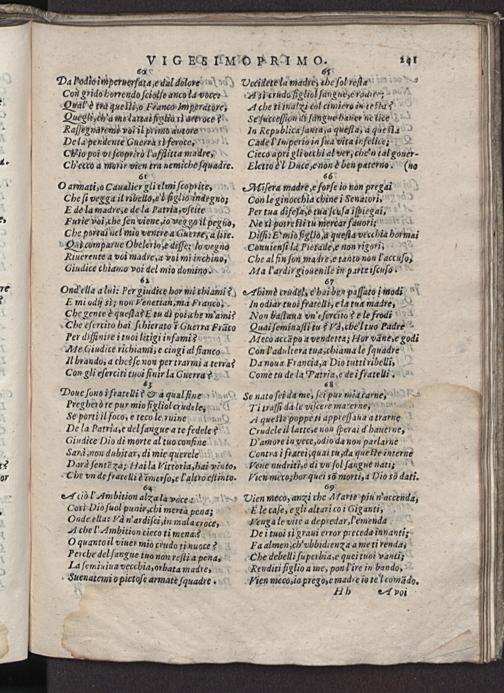 VIGESIMOPRIMO. 241
60
Da Podio imperuersata, e dal dolore
Con grido horrendo sciolse anco la voce:
Qual' è tra quelli, o Franco imperatore,
Quegli, ch'a me lattai figlio sì atroce?
Rassegnaremi voi il primo autore
De la pendente Guerra sì feroce,
Ch'io poi vi scoprirò l'afflitta madre,
Ch'ecco a morir vien tra nemiche squadre.
61
O armati, o Caualier gli elmi scoprite,
Che si vegga il ribello, e'l figlio indegno;
E de la madre, e de la Patria, vscite
Furie voi, che sen viene, io veggo il pegno,
Che portai nel mio ventre a Guerra, a lite.
Quì comparue Obelerio, e disse; Io vegno
Riuerente a voi madre, a voi mi inchino,
Giudice chiamo voi del mio domino.
62
Ond'ella a lui: Per giudice hor mi chiami?
E mi odij sì; non Venetian, ma Franco.
Che gente è questa? E tu di poi, ch'or m'ami?
Che esercito hai schierato ì Guerra Frãco
Per diffinire i tuoi litigi infami?
Me Giudice richiami, e cingi al fianco
Il brando, a che? se non per trarmi a terra?
Con gli eserciti tuoi finir la Guerra?
63
Doue sono i fratelli? & a qual fine
Pregherò te pur mio figliol crudele,
Se porti il foco, e teco le ruine
De la Patria, e del sangue a te fedele?
Giudice Dio di morte al tuo confine
Sarà, non dubitar, di mie querele
Darà sentẽza; Hai la Vittoria, hai vinto,
Che vn de fratelli è sõmerso, e l'altro estinto.
64
A ciò l'Ambition alza la voce:
Così Dio suol punir, chi merta pena;
Onde ella: Và n'ardisci, in mala croce,
A che l'Ambition cieco ti mena?
O quanto il viuer mio crudo ti nuoce?
Perche del sangue tuo non resti a pena,
La feminina vecchia, orbata madre,
Suenatemi o pietose armate squadre.
65
Uccidete la madre, che sol resta
A sì crudo figliol sangue, e rodire;
A che t'inalzi col cimiero in testa?
Se succession di sangue hauer ne lice
In Republica santa, a questa, a questa
Cade l'Imperio in sua vita infelice;
Cieco apri gli occhi al ver, che'n tal gouer-
Eletto è'l Duce, e non è ben paterno. (no
66
Misera madre, e forse io non pregai
Con le ginocchia chine i Senatori,
Per tua difesa, e tua scusa ispiegai,
Ne si potresti tu mercar fauori;
Dissi: E' mio figlio, a questa vecchia hormai
Conuiensi la Pietade, e non rigori,
Che al fin son madre, e tanto non l'accuso,
Ma l'ardir giouenile in parte iscuso.
67
Ahimè crudel, e hai ben passato i modi
In odiar tuoi fratelli, e la tua madre,
Non bastaua vn'esercito? e le frodi
Quai seminasti tu? Và, che'l tuo Padre
Meco accãpo a vendetta; Hor vãne, e godi
Con l'adultera tua, chiama le squadre
Da noua Francia, a Dio tutti ribelli,
Come tu de la Patria, e de i fratelli.
68
Se nato sei da me, sei pur mia carne,
Ti trassi da le viscere materne,
A queste poppe si appressaua a trarne
Crudele il latte, e non sperai d'hauerne,
D'amore in vece, odio da non parlarne
Contra i fratei, quai tu, da queste interne
Vene nudriti, e di vn sol sangue nati;
Vien meco; hor quei sõ morti, a Dio sò dati.
69
Vien meco, anzi che Marte più n'accenda,
E le case, e gli altari co i Giganti,
Venga le vite a depredar, l'emenda
De i tuoi sì graui error preceda innanti;
Fa almen, ch'vbbidienza a me ti renda,
Che debelli superbia, e quei tuoi vanti;
Renditi figlio a me, pon l'ire in bando,
Vien meco, io prego, e madre io te'l comãdo.
Hh A voi